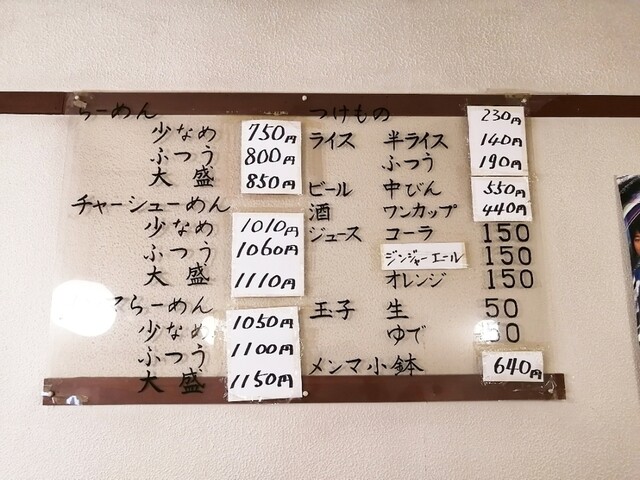 らーめん
少なめ 750円
ふつう 800円
大盛 850円
チャーシューめん
少なめ 1010円
ふつう 1060円
大盛 1110円
らーめん
少なめ 1050円
ふつう 1100円
大盛 1150円
つけもの 230円
ライス 半ライス 140円
ふつう 190円
ビール 中びん 550円
酒 ワンカップ 440円
ジュース コーラ 150
ジンジャーエール 150
オレンジ 150
玉子 生 50
ゆで 50
メンマ小鉢 640円